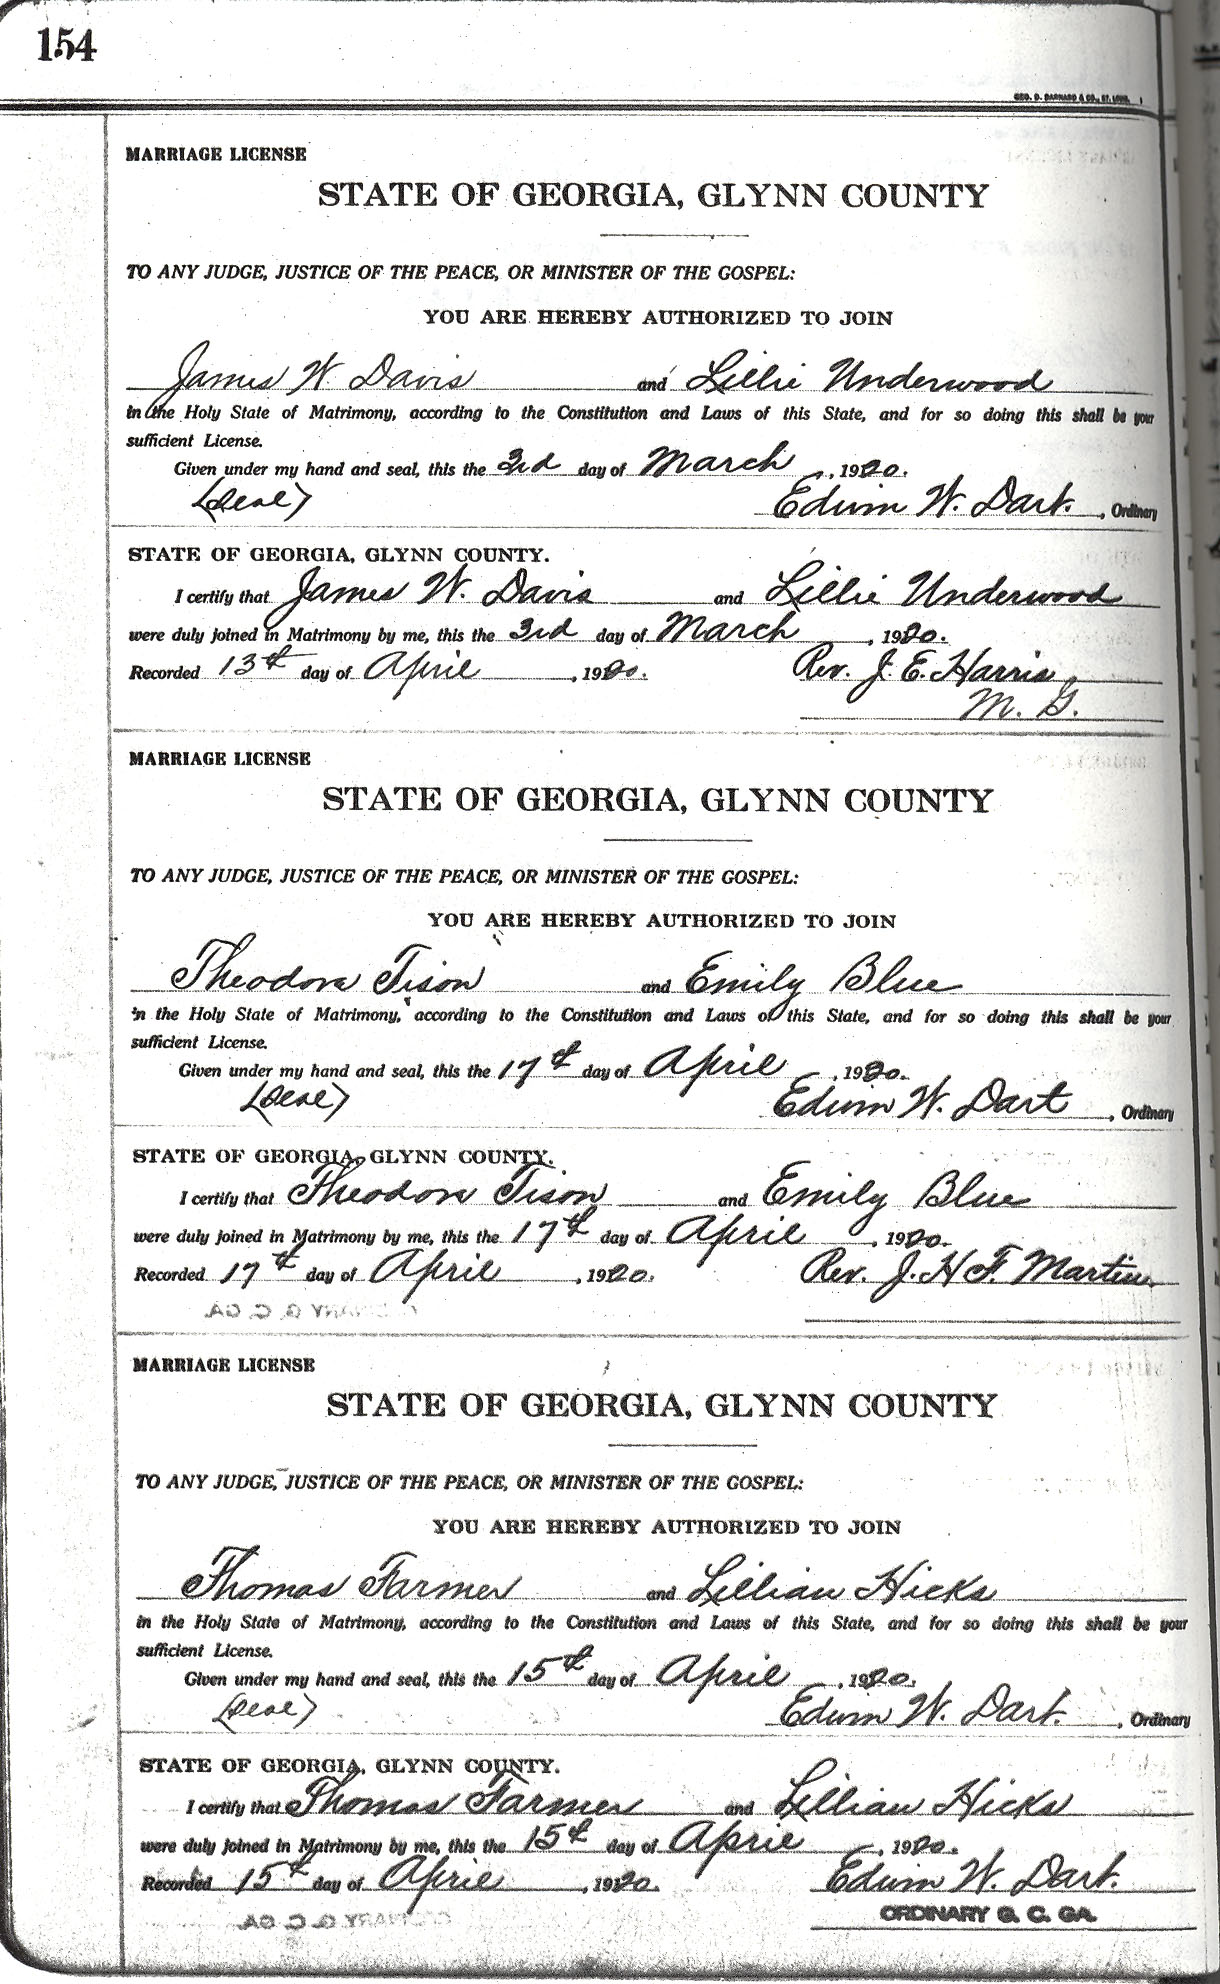 154
GEO. D. BARNARD & CO., ST. LOUIS.
MARRIAGE LICENSE
STATE OF GEORGIA, GLYNN COUNTY
TO ANY JUDGE, JUSTICE OF THE PEACE, OR MINISTER OF THE GOSPEL:
YOU ARE HEREBY AUTHORIZED TO JOIN
James W. Davis and Lillie Underwood
in the Holy State of Matrimony, according to the Constitution and Laws of this State, and for so doing this shall be your
sufficient License.
Given under my hand and seal, this the 3rd day of March, 1920.
(Seal) Edwin W. Dart., Ordinary
STATE OF GEORGIA, GLYNN COUNTY.
I certify that James W. Davis and Lillie Underwood
were duly joined in Matrimony by me, this the 3rd day of March, 1920.
Recorded 13th day of April, 1920. Rev. J. E. Harris,
M. G.
MARRIAGE LICENSE
STATE OF GEORGIA, GLYNN COUNTY
TO ANY JUDGE, JUSTICE OF THE PEACE, OR MINISTER OF THE GOSPEL:
YOU ARE HEREBY AUTHORIZED TO JOIN
Theodore Tison and Emily Blue
in the Holy State of Matrimony, according to the Constitution and Laws of this State, and for so doing this shall be your
sufficient License.
Given under my hand and seal, this the 17th day of April, 1920.
(Seal) Edwin W. Dart, Ordinary
STATE OF GEORGIA, GLYNN COUNTY.
I certify that Theodore Tison and Emily Blue
were duly joined in Matrimony by me, this the 17th day of April, 1920.
Recorded 17th day of April, 1920. Rev. J. H. F. Martin
MARRIAGE LICENSE
STATE OF GEORGIA, GLYNN COUNTY
TO ANY JUDGE, JUSTICE OF THE PEACE, OR MINISTER OF THE GOSPEL:
YOU ARE HEREBY AUTHORIZED TO JOIN
Thomas Farmer and Lillian Hicks
in the Holy State of Matrimony, according to the Constitution and Laws of this State, and for so doing this shall be your
sufficient License.
Given under my hand and seal, this the 15th day of April, 1920.
(Seal) Edwin W. Dart., Ordinary
STATE OF GEORGIA, GLYNN COUNTY.
I certify that Thomas Farmer and Lillian Hicks
were duly joined in Matrimony by me, this the 15th day of April, 1920.
Recorded 15th day of April, 1920. Edwin W. Dart.
ORDINARY G. C. GA.